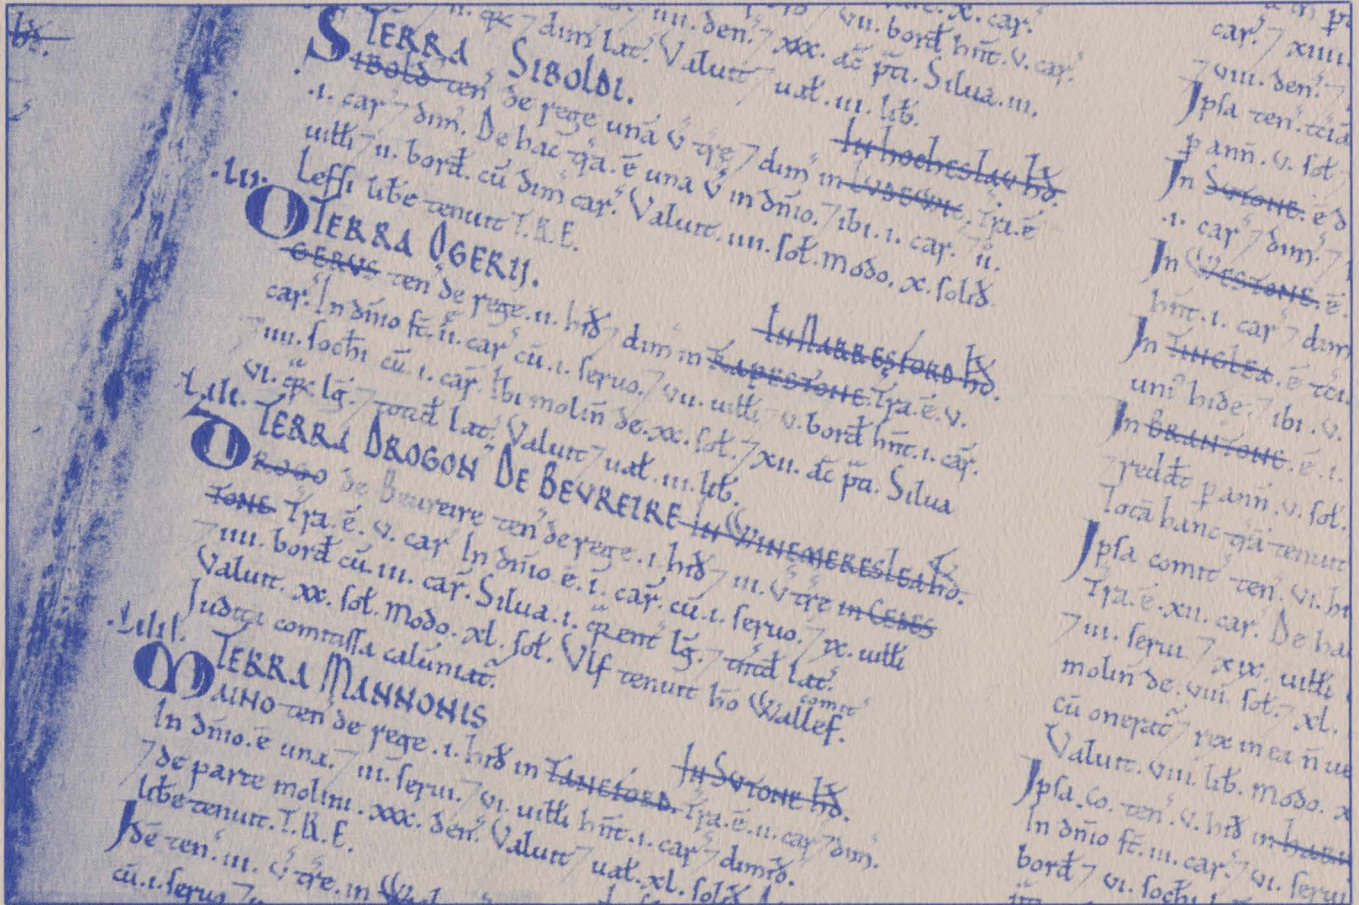 x. car.
vii. bord hn̄t. v. car.
iiii. den. 7 xxx. ac̄ p̄ti. Silua. iii.
ii. qrc̄ 7 dim̄ lat̄. Valuit 7 ual. iii. lib.
TERRA SIBOLDI. In hocheslau hd̄.
SIBOLD ten̄ de rege unā v̄ trę̄ 7 dim̄ in LUDEWIC. Tra. ē
.i. car̄ 7 dim̄. De hac tr̄a. ē una v̄ in dn̄io. 7 ibi. i. car. 7 ii.
uilli 7 ii. bord. cū dim̄ car̄. Valuit. iiii. sol. modo. x. solid
Leffi libe tenuit T.R.E.
.LII. TERRA OGERIJ. In NARRESFORD hd̄.
OGERUS ten̄ de rege. ii. hid 7 dim̄ in RAPESTONE. Tra. ē. v.
car̄. In dn̄io st̄. ii. car̄ cū. i. seruo. 7 vii. uilli 7 v. bord hn̄t. i. car̄.
7 iiii. sochi cū. i. car̄. Ibi molin̄ de. xx. sol. 7 xii. ac̄ p̄ti. Silua
vi. qrc̄ lḡ. 7 totid̄ lat̄. Valuit 7 ual. iii. lib.
.LIII. TERRA DROGON DE BEVREIRE In WINEMERESLEA hd̄.
DROGO de Beureire ten̄ de rege. i. hid 7 iii. v̄ trę̄ in CEDES
TONE. Tra. ē. v. car. In dn̄io ē. i. car. cū. i. seruo. 7 ix. uilli
7 iiii. bord cū. iii. car̄. Silua. i. qrent̄ lḡ. 7 tn̄td lat̄.
Valuit. xx. sol. Modo. xl. sol. Ulf tenuit hō Wallef. comit̄
Judita comitissa calūniat̄.
.LIIII. TERRA MANNONIS In SUTONE hd̄.
MAINO ten̄ de rege. i. hid in TANEFORD. Tra. ē. ii. car̄ 7 dim̄.
In dn̄io. ē una. 7 iii. serui. 7 vi. uilli hn̄t. i. car̄ 7 dimid.
7 de parte molini. xxx. den̄. Valuit 7 ual. xl. solid
libe tenuit. T.R.E.
Jdē ten̄. iii. v̄ trę̄. in
cū. i. seruo 7
car̄. 7 xiiii.
7 viii. den̄. 7
Jpsa ten̄. tciā
p ann̄. v. sol
In SUTONE. ē d
.i. car̄ 7 dim̄. 7
In WESTONE. ē.
hn̄t. i. car̄ 7 dim̄
In TINGLEA. ē tci
uni hide. 7 ibi. v.
In BRANTONE. ē. i.
7 reddt̄ p ann̄. v. sol.
Totā hanc tr̄ā tenuit
Jpsa comit̄ ten̄. vi. hi
Tra. ē. xii. car. De ha
7 iii. serui. 7 xix. uilli
molin̄ de. viii. sol. 7 xl.
cū onerat̄ 7 rex in ea n̄ ue
Valuit. viii. lib. modo. x
Jpsa. Co. ten̄. v. hid in
In dn̄io st̄. iii. car. 7 vi. serui
bord 7 vi. sochi